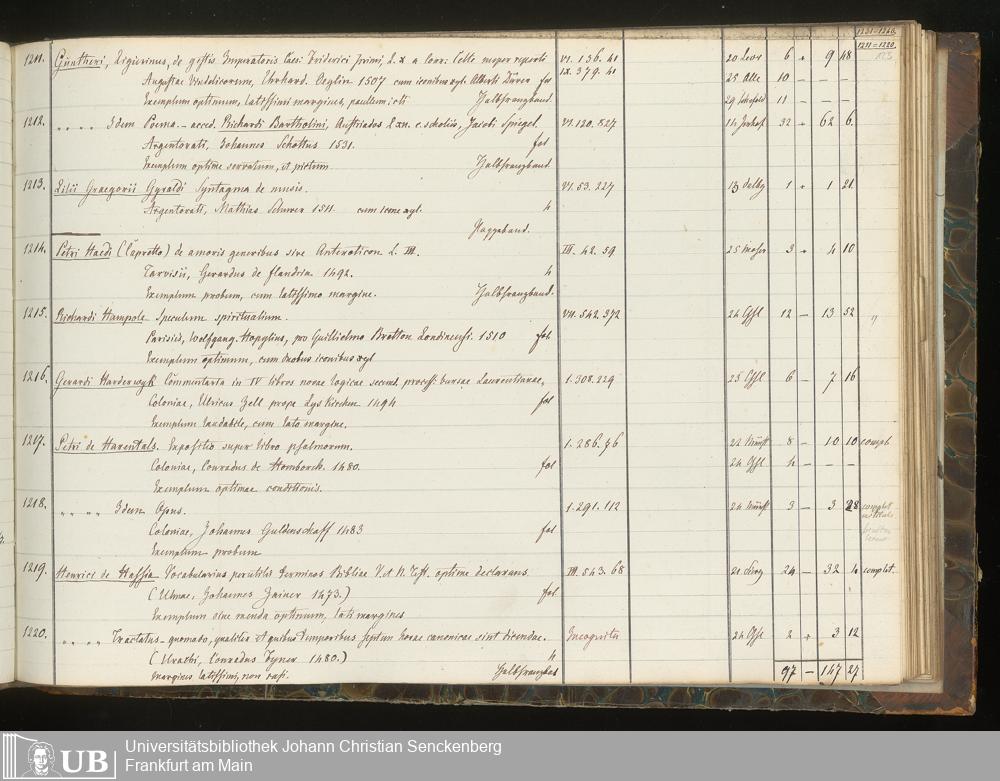 1231=1240.
1211=1220.
1211. Güntheri, Ligurinus, de gestis Imperatoris Caes: Friderici primi, L. X a Conr: Celte nuper reperti VI. 136. 41 20 6 9 48
Augustae Vindelicorum, Erhard. Oeglin 1507 cum iconibus xyl. Alberti Dürer fol IX. 379. 41 25 10 – – –
Exemplum optimum, latissimi margines, Halbfranzband. 29 11 – – –
1212. " " " " Idem Poema. – acced. Richardi Bartholini, Austriados L XII. c. scholiis, Jacobi Spiegel. VI. 120. 827 14 32 62 6.
Argentorati, Johannes Schottus 1531. fol
Exemplum optime servatum, et pictum Halbfranzband.
1213. Lilii Graegorii Gyraldi Syntagma de musis. VI. 53. 227 13 1 1 21.
Argentorati, Mathias Schurer 1511. cum icone xyl. 4
Pappeband.
1214. Petri Haedi (Capretto) de amoris generibus sive Anteroticon L. III. III. 42. 59 25 Moser 3 4 10
Tarvisii, Gerardus de flandria 1492. 4
Exemplum probum, cum latissimo margine. Halbfranzband.
1215. Richardi Hampole Speculum spiritualium. VII. 542. 372 24 12 – 13 52
Parisiis, Wolfgang. Hopylius, pro Guillielmo Bretton Londinensi. 1510 fol.
Exemplum optimum, cum duobus iconibus xyl
1216. Gerardi Harderwyk Commentaria in IV libros novae logicae secund. process: bursae Laurentianae, 1. 308. 229 25 6 – 7 16
Coloniae, Ulricus Zell prope Lyskirchen 1494 fol
Exemplum laudabile, cum lato margine.
1217. Petri de Harentals. Expositio super libro psalmorum. 1. 286. 76 22 8 – 10 10 compl.
Coloniae, Conradus de Homborch. 1480. fol 24 4 – – –
Exemplum optimae conditionis.
1218. " " " " Idem Opus. 1. 291. 112 24 3 – 3 28 complet
Coloniae, Johannes Guldenschaff 1483 fol
Exemplum probum
1219. Henrici de Hassia Vocabularius perutilis terminos Bibliae V. et N. Test. optime declarans. III. 543. 68 21 24 – 32 4 complet.
(Ulmae, Johannes Zainer 1473.) fol.
Exemplum sine menda optimum, lati margines
1220. " " " " Tractatus – quomodo, qualiter et quibus temporibus septem horae canonicae sint dicendae. Incognitu 24 2 3 12
(Urachi, Conradus Fyner 1480.) 4
Margines latissimi, non rasi. Halbfranzbd
97 – 147 27
UB
Universitätsbibliothek Johann Christian Senckenberg
Frankfurt am Main